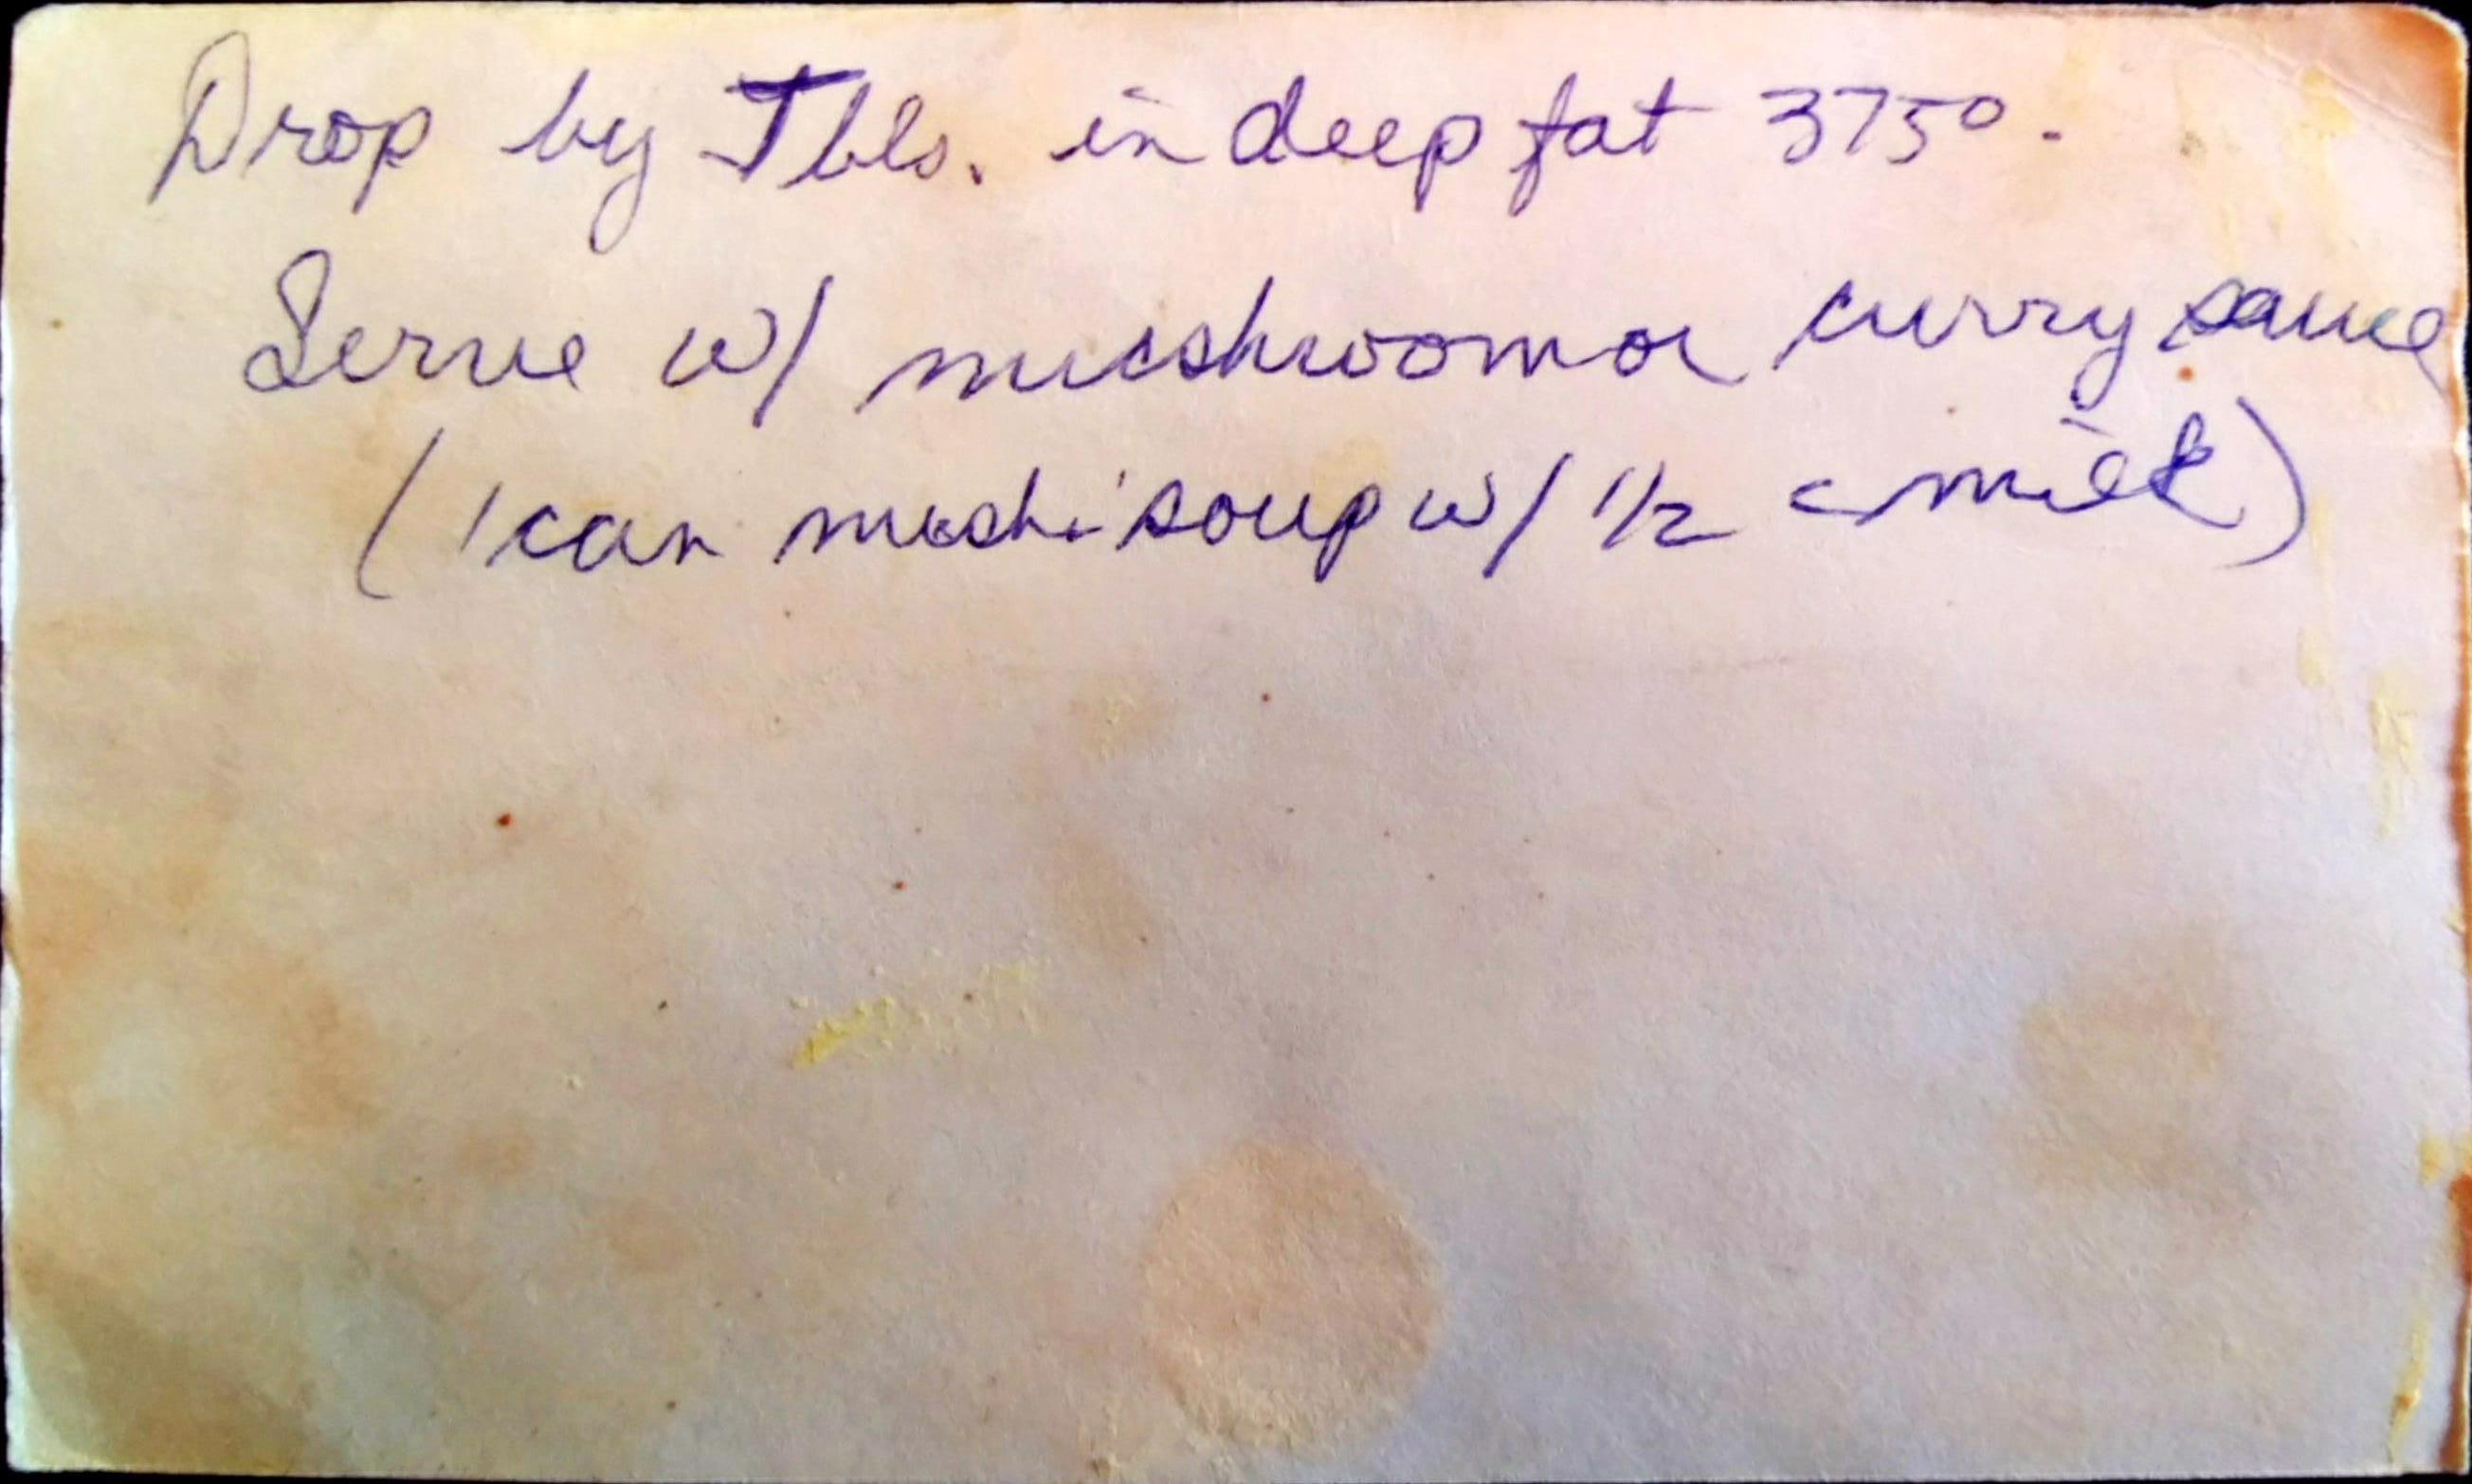 Drop by Tbls. in deep fat 375°.
Serve w/ mushroom or curry sauce
(1 can mush. soup w/ 1/2 c milk)